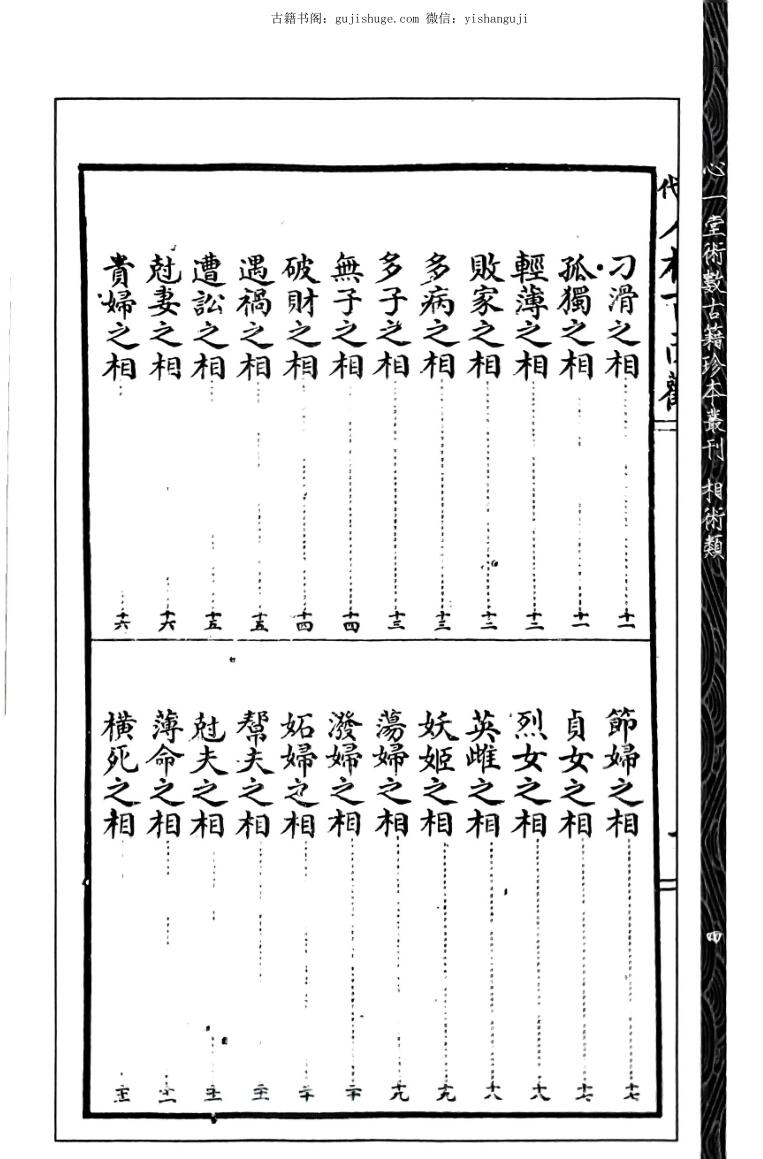 古籍书阁：gujishuge.com 微信：yishanguji
心一堂術數古籍珍本叢刊 相術類
四
刁滑之相 十一
孤獨之相 十一
輕薄之相 十二
敗家之相 十二
多病之相 十三
多子之相 十三
無子之相 十四
破財之相 十四
遇禍之相 十五
遭訟之相 十五
尅妻之相 十六
貴婦之相 十六
節婦之相 十七
貞女之相 十七
烈女之相 十八
英雌之相 十八
妖姬之相 十九
蕩婦之相 十九
潑婦之相 二十
妬婦之相 二十
幫夫之相
尅夫之相
薄命之相
橫死之相